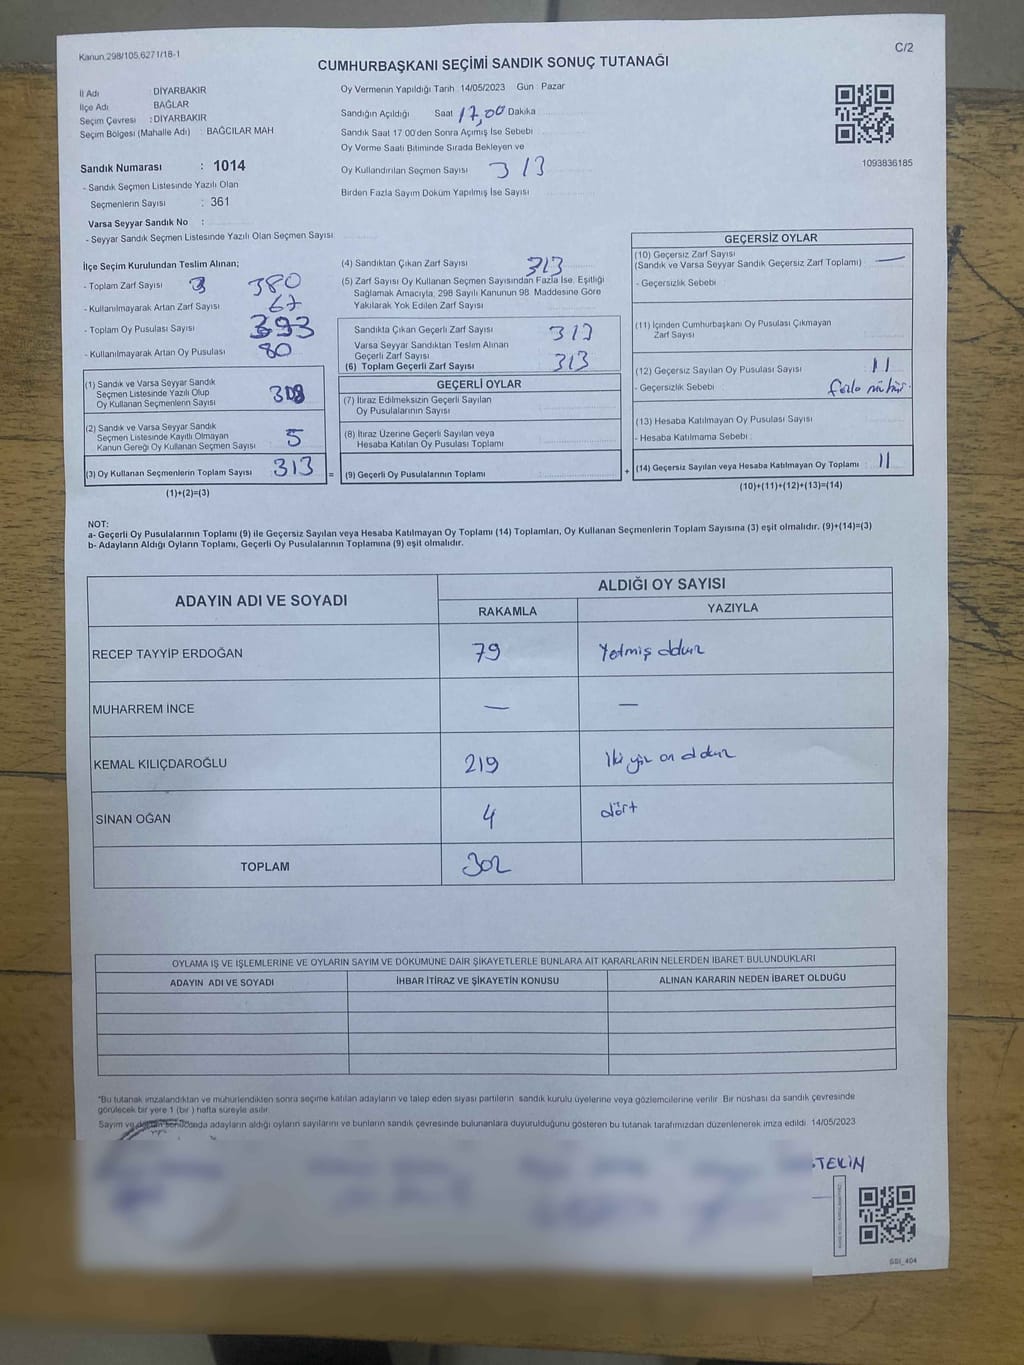 Kanun.298/105,6271/18-1
C/2
CUMHURBAŞKANI SEÇİMİ SANDIK SONUÇ TUTANAĞI
İl Adı : DİYARBAKIR
İlçe Adı : BAĞLAR
Seçim Çevresi : DİYARBAKIR
Seçim Bölgesi (Mahalle Adı) : BAĞCILAR MAH
Sandık Numarası : 1014
- Sandık Seçmen Listesinde Yazılı Olan
Seçmenlerin Sayısı : 361
Varsa Seyyar Sandık No :
- Seyyar Sandık Seçmen Listesinde Yazılı Olan Seçmen Sayısı
Oy Vermenin Yapıldığı Tarih 14/05/2023 Gün : Pazar
Sandığın Açıldığı Saat 17,00 Dakika
Sandık Saat 17 00'den Sonra Açımış İse Sebebi
Oy Verme Saati Bitiminde Sırada Bekleyen ve
Oy Kullandırılan Seçmen Sayısı 313
Birden Fazla Sayım Doküm Yapılmış İse Sayısı
1093836185
İlçe Seçim Kurulundan Teslim Alınan;
- Toplam Zarf Sayısı 380
- Kullanılmayarak Artan Zarf Sayısı 67
- Toplam Oy Pusulası Sayısı 393
- Kullanılmayarak Artan Oy Pusulası 80
(1) Sandık ve Varsa Seyyar Sandık
Seçmen Listesinde Yazılı Olup
Oy Kullanan Seçmenlerin Sayısı 308
(2) Sandık ve Varsa Seyyar Sandık
Seçmen Listesinde Kayıtlı Olmayan
Kanun Gereği Oy Kullanan Seçmen Sayısı 5
(3) Oy Kullanan Seçmenlerin Toplam Sayısı 313 =
(1)+(2)=(3)
(4) Sandıktan Çıkan Zarf Sayısı 313
(5) Zarf Sayısı Oy Kullanan Seçmen Sayısından Fazla İse, Eşitliği
Sağlamak Amacıyla, 298 Sayılı Kanunun 98. Maddesine Göre
Yakılarak Yok Edilen Zarf Sayısı
Sandıkta Çıkan Geçerli Zarf Sayısı 313
Varsa Seyyar Sandıktan Teslim Alınan
Geçerli Zarf Sayısı
(6) Toplam Geçerli Zarf Sayısı 313
GEÇERLİ OYLAR
(7) İtiraz Edilmeksizin Geçerli Sayılan
Oy Pusulalarının Sayısı
(8) İtiraz Üzerine Geçerli Sayılan veya
Hesaba Katılan Oy Pusulası Toplamı
(9) Geçerli Oy Pusulalarının Toplamı +
GEÇERSİZ OYLAR
(10) Geçersiz Zarf Sayısı
(Sandık ve Varsa Seyyar Sandık Geçersiz Zarf Toplamı) —
- Geçersizlik Sebebi
(11) İçinden Cumhurbaşkanı Oy Pusulası Çıkmayan
Zarf Sayısı
(12) Geçersiz Sayılan Oy Pusulası Sayısı 11
- Geçersizlik Sebebi : fazla mühür.
(13) Hesaba Katılmayan Oy Pusulası Sayısı
- Hesaba Katılmama Sebebi :
(14) Geçersiz Sayılan veya Hesaba Katılmayan Oy Toplamı : 11
(10)+(11)+(12)+(13)=(14)
NOT:
a- Geçerli Oy Pusulalarının Toplamı (9) ile Geçersiz Sayılan veya Hesaba Katılmayan Oy Toplamı (14) Toplamları, Oy Kullanan Seçmenlerin Toplam Sayısına (3) eşit olmalıdır. (9)+(14)=(3)
b- Adayların Aldığı Oyların Toplamı, Geçerli Oy Pusulalarının Toplamına (9) eşit olmalıdır.
ADAYIN ADI VE SOYADI ALDIĞI OY SAYISI
RAKAMLA YAZIYLA
RECEP TAYYİP ERDOĞAN 79 Yetmiş dokuz
MUHARREM İNCE — —
KEMAL KILIÇDAROĞLU 219 İki yüz on dokuz
SİNAN OĞAN 4 dört
TOPLAM 302
OYLAMA İŞ VE İŞLEMLERİNE VE OYLARIN SAYIM VE DÖKÜMÜNE DAİR ŞİKAYETLERLE BUNLARA AİT KARARLARIN NELERDEN İBARET BULUNDUKLARI
ADAYIN ADI VE SOYADI İHBAR İTİRAZ VE ŞİKAYETİN KONUSU ALINAN KARARIN NEDEN İBARET OLDUĞU
*Bu tutanak imzalandıktan ve mühürlendikten sonra seçime katılan adayların ve talep eden siyasi partilerin sandık kurulu üyelerine veya gözlemcilerine verilir. Bir nüshası da sandık çevresinde
görülecek bir yere 1 (bir ) hafta süreyle asılır.
Sayım ve döküm sonucunda adayların aldığı oyların sayılarını ve bunların sandık çevresinde bulunanlara duyurulduğunu gösteren bu tutanak tarafımızdan düzenlenerek imza edildi. 14/05/2023
TEKİN
SSI_404